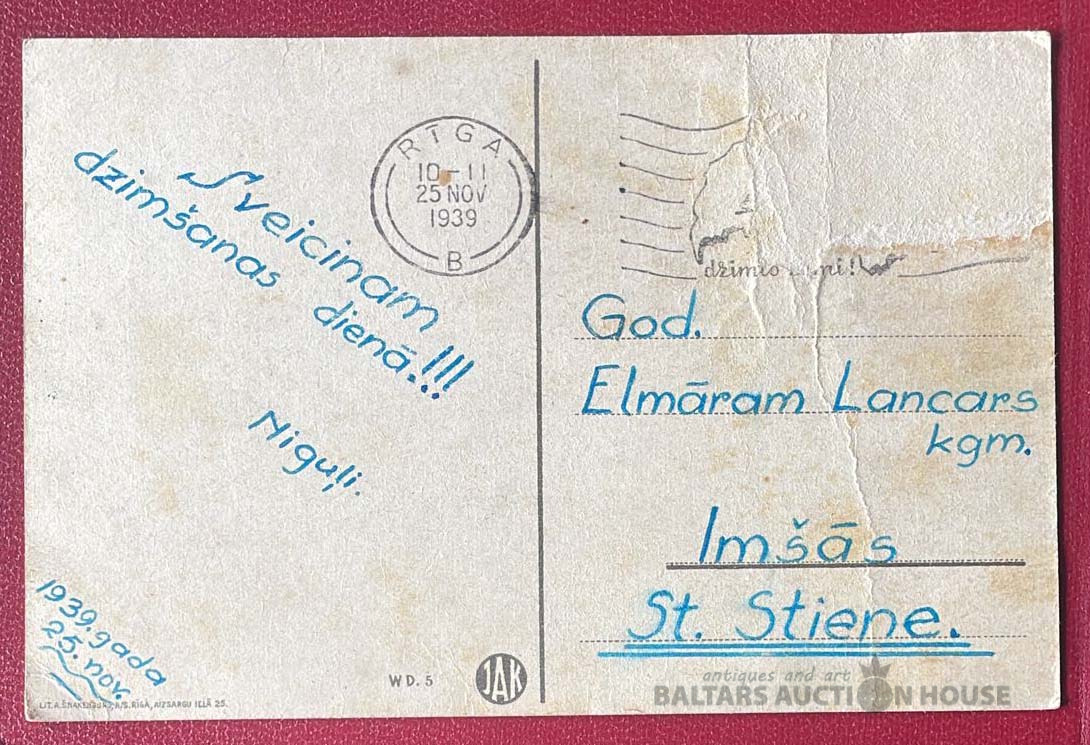 RĪGA
10-11
25 NOV
1939
B
Sveicinam
dzimšanas dienā!!!
Niguļi.
1939.gada
25. nov.
LIT. A. ŠNAKENBURG, A/S. RĪGĀ, AIZSARGU IELĀ 25.
WD.5
JAK
God.
Elmāram Lancars
kgm.
Imšās
St. Stiene.
antiques and art
BALTARS AUCTION HOUSE